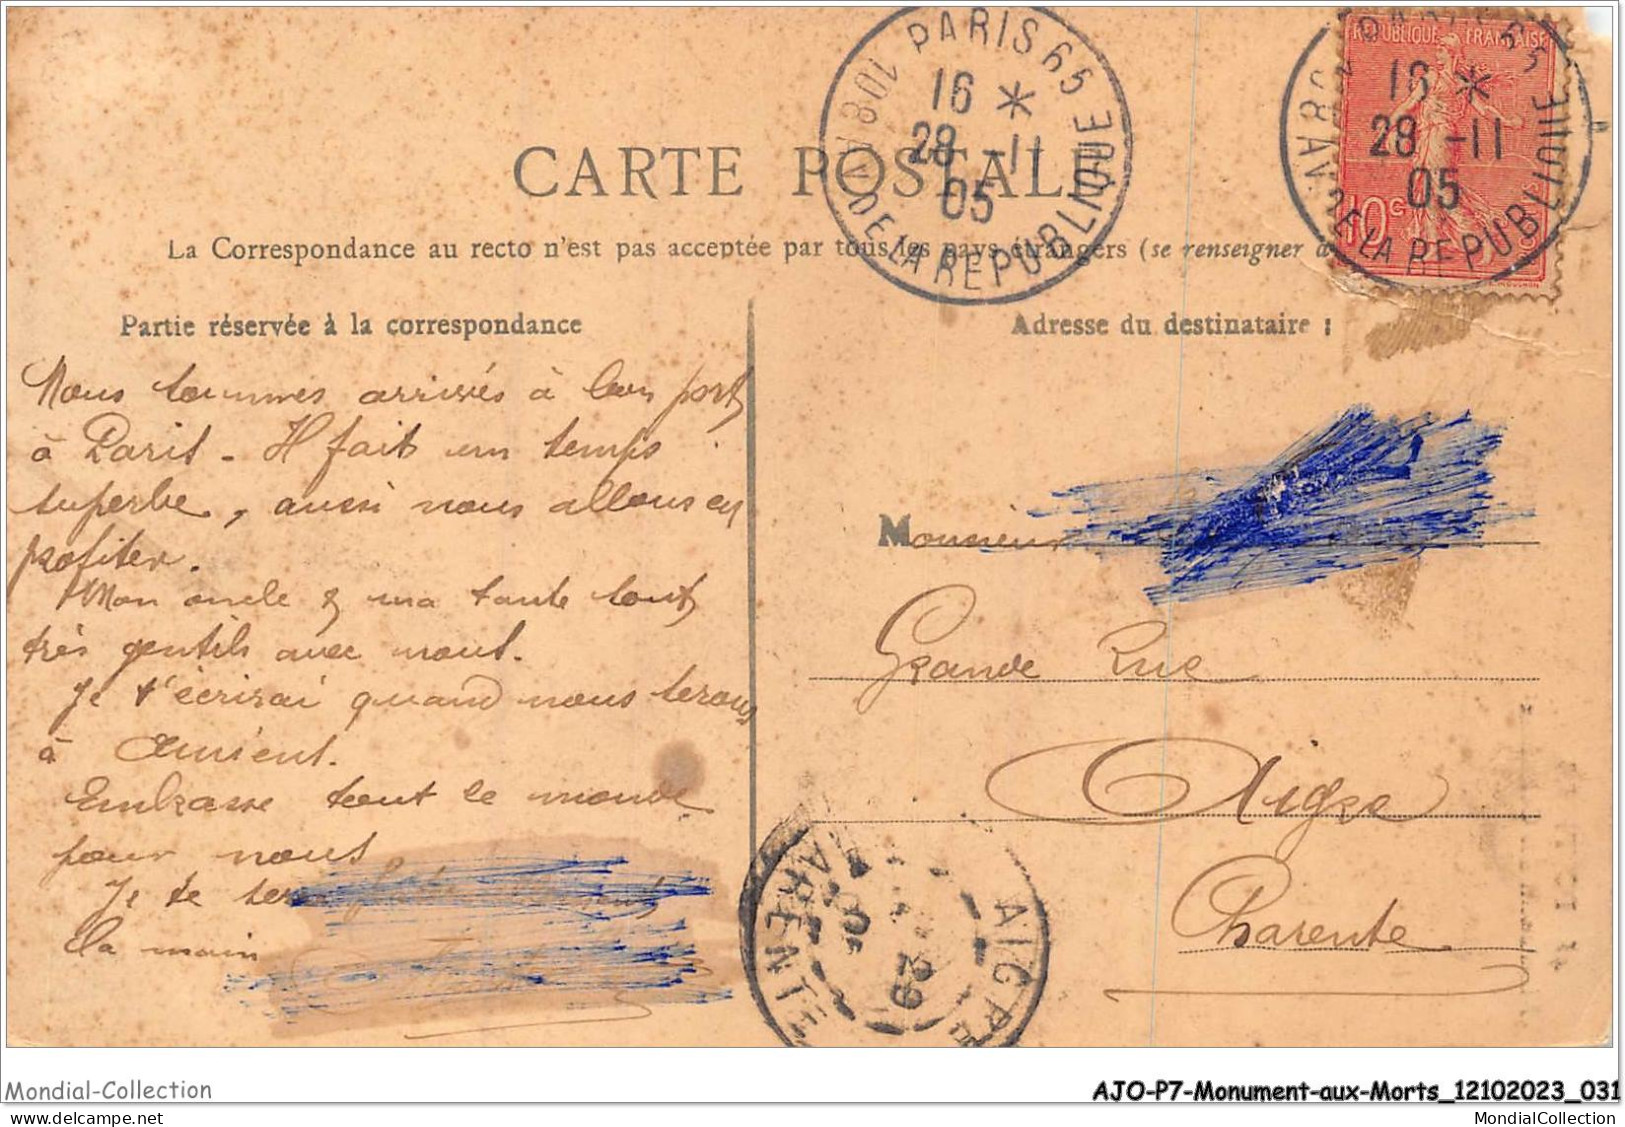 PARIS 65
108 AV. DE LA REPUBLIQUE
16 *
28 -11
05
REPUBLIQUE FRANÇAISE
10c
PARIS 65
108 AV. DE LA REPUBLIQUE
16 *
28 -11
05
CARTE POSTALE
La Correspondance au recto n'est pas acceptée par tous les pays étrangers (se renseigner à
Partie réservée à la correspondance
Adresse du destinataire :
Nous sommes arrivés à bon port
à Paris - Il fait un temps
superbe, aussi nous allons en
profiter.
Mon oncle & ma tante sont
très gentils avec nous.
Je t'écrirai quand nous serons
à Amiens.
Embrasse tout le monde
pour nous
Je te serre
la main
Monsieur
Grande Rue
Aigre
Charente
AIGRE
CHARENTE
29
05
Mondial-Collection
AJO-P7-Monument-aux-Morts_12102023_031
MondialCollection